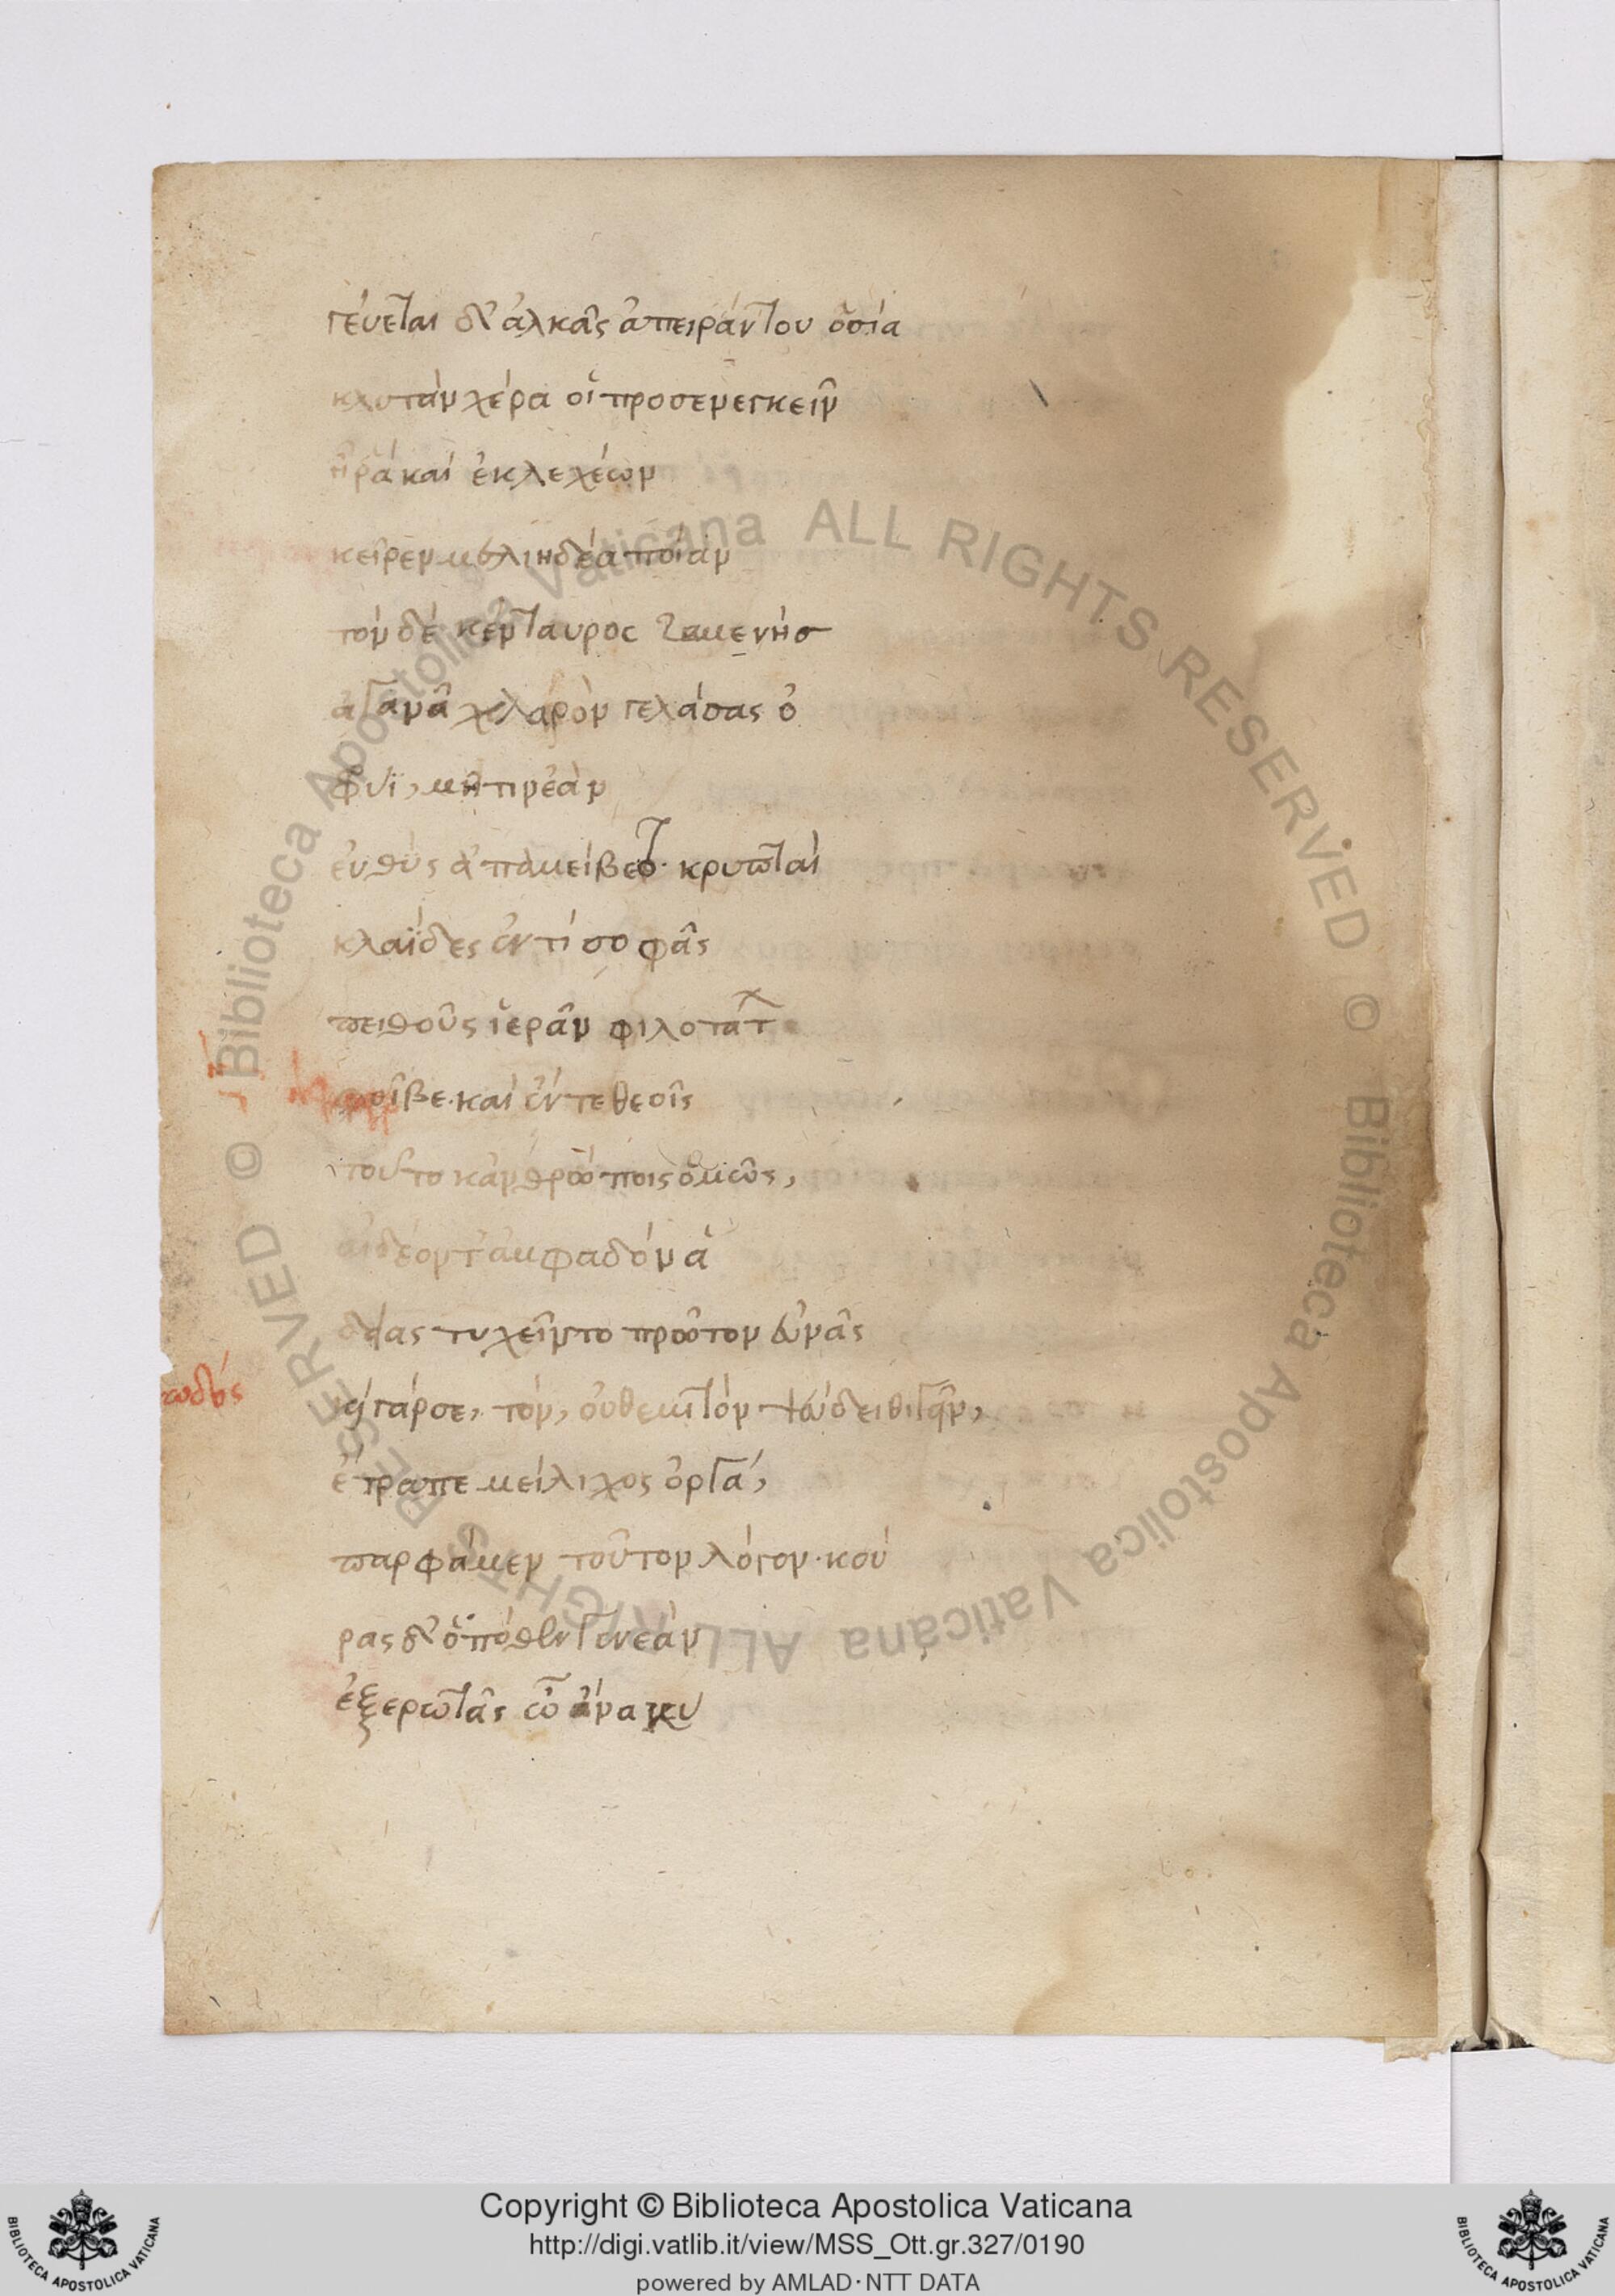 γεύεται δ' ἀλκᾶς ἀπειράντου ὁσία
κλυτὰν χέρα οἱ προσενεγκεῖν
ἦ ῥα καὶ ἐκ λεχέων
κεῖρεν μελιηδέα ποίαν
τὸν δὲ κένταυρος ζαμενὴσ
ἀγανᾶ χλαρὸν γελάσας ὀ
φρύϊ, μῆτιν ἑὰν
εὐθὺς ἀπαμείβετο· κρυπταὶ
κλαΐδες ἐντὶ σοφᾶς
πειθοῦς ἱερᾶν φιλοτατ
φοῖβε· καὶ ἔν τε θεοῖς
τοῦτο κἀνθρώποις ὁμῶς,
αἰδέοντ' ἀμφαδὸν ἁ
δείας τυχεῖν το πρῶτον εὐνᾶς
κωδός
καὶ γάρ σε, τὸν, οὐ θεμιτὸν ψεύδει θιγεῖν,
ἔτραπε μείλιχος ὀργά,
παρφάμεν τοῦτον λόγον· κού
ρας δ' ὁπόθεν γενεὰν
ἐξερωτᾶς ὦ ἄνα κυ
Copyright © Biblioteca Apostolica Vaticana
http://digi.vatlib.it/view/MSS_Ott.gr.327/0190
powered by AMLAD·NTT DATA
BIBLIOTECA APOSTOLICA VATICANA
BIBLIOTECA APOSTOLICA VATICANA
© Biblioteca Apostolica Vaticana ALL RIGHTS RESERVED
© Biblioteca Apostolica Vaticana ALL RIGHTS RESERVED